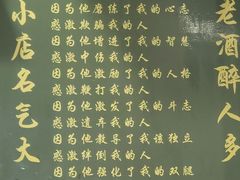 老酒醉人多
因为他磨练了我的心志
感激欺骗我的人
因为他增进了我的智慧
感激中伤我的人
因为他激励了我的人格
感激鞭打我的人
因为他激发了我的斗志
感激遗弃我的人
因为他教导了我该独立
感激绊倒我的人
因为他强化了我的双腿
小店名气大